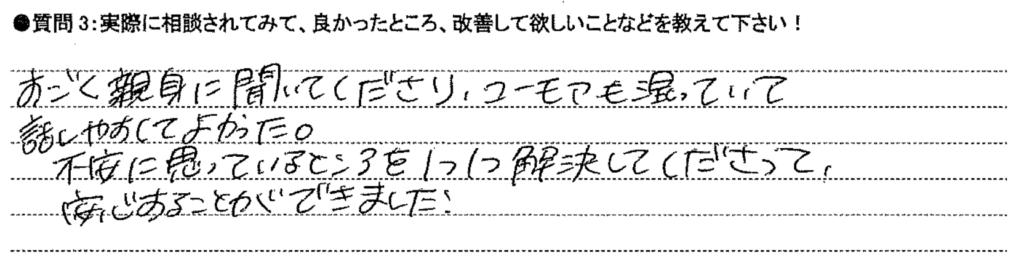 ●質問3:実際に相談されてみて、良かったところ、改善して欲しいことなどを教えて下さい!
すごく親身に聞いてくださり、ユーモアも混っていて
話しやすくてよかった。
不安に思っているところを1つ1つ解決してくださって、
安心することができました!